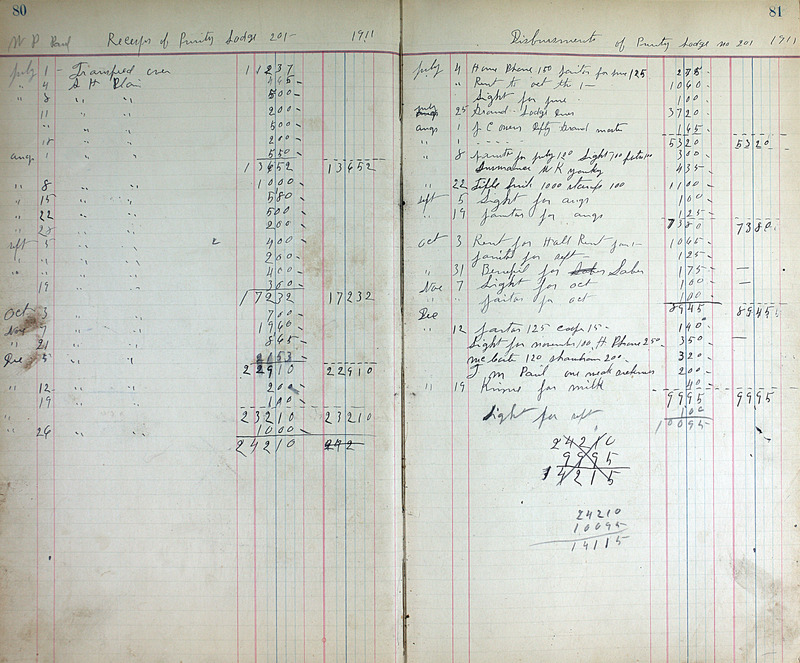 80
W P Paul Receips of Purity Lodge 201- 1911
July 1 - Transfred over 11237
" 4 " " 465-
" 8 " " 500-
" 11 " " 200-
" " " 500-
" 18 " " 200-
augs 1 " " 550-
13652 13652
" 8 " " 1000-
" 15 " " 580
" 22 " " 500
" 28 " " 200-
Sept 5 " " 400-
" " " 200-
" " " 400-
" 19 " " 300-
17232 17232
Oct 3 " " 700-
Nov 7 " " 1960-
" 21 " " 865-
Dec 5 " " 2153-
22910 22910
" 12 " " 200
" 19 " " 100
23210 23210
" 26 " " 1000-
24210 242
81
Disbursments of Purity Lodge no 201 1911
July 4 Phone 150 Janitor for June 125 275-
" " Rent to oct the 1- 1060-
Light for June 100-
July 25 Grand Lodge Dues 3720-
augs 1 J C Dety Grand master 165-
" 1 - - - - - 5320 5320
" 8 Janitor for July 120 Light 100 300-
435-
" 22 1000 stamps 100 1100-
Sept 5 Light for augs 100-
" 19 Janitor for augs 125-
7380 7380
Oct 3 Rent for Hall Rent for 1- 1065-
Janitor for sept - 125-
" 31 Benefit for Saber 175-
Nov 7 Light for oct 100-
" " Janitor for oct 100
Dec 8945 8945
" 12 Janitor 125 15- 140-
Light for november 100 H Phone 250- 350-
120 200- 320-
J M Paul one week 200-
" 19 for milk 40-
9995 9995
Light for sept 100
10095
24210
9995
14215
24210
10095
14115